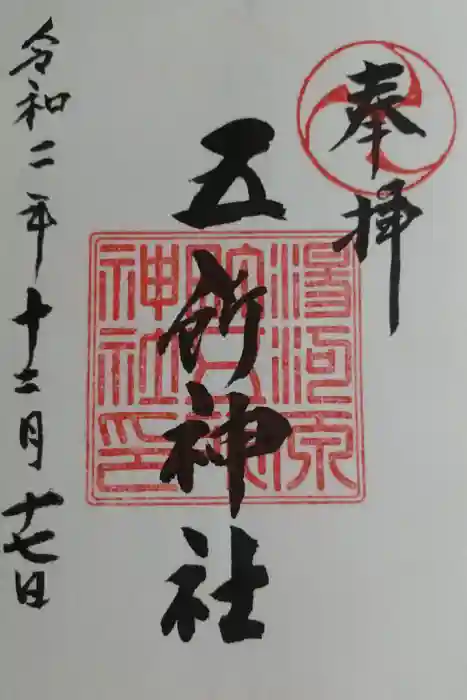 奉拝
五所神社
湯河原
神社印
令和二年十二月十七日